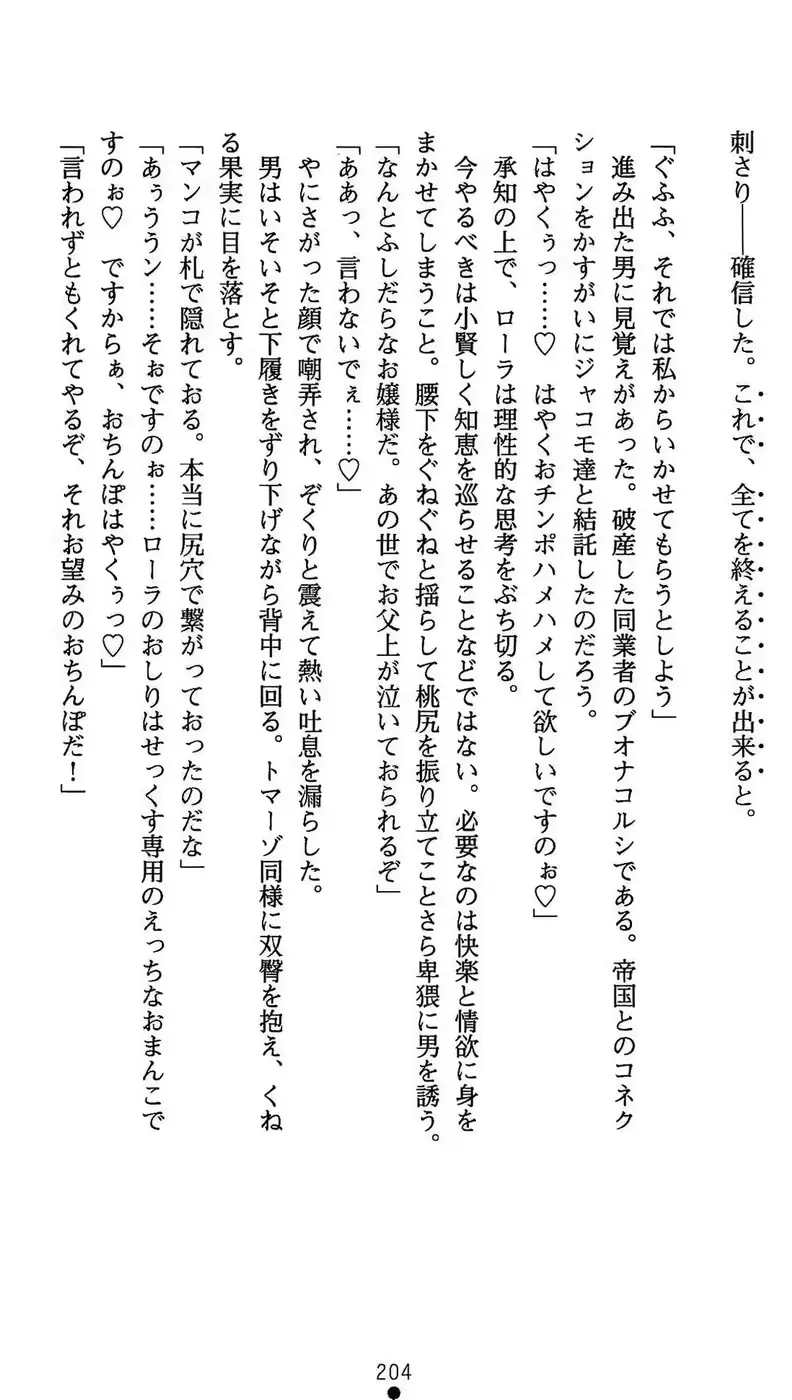 刺さり――確信した。これで、全てを終えることが出来ると。
「ぐふふ、それでは私からいかせてもらうとしよう」
進み出た男に見覚えがあった。破産した同業者のブオナコルシである。帝国とのコネク
ションをかすがいにジャコモ達と結託したのだろう。
「はやくぅっ……♡　はやくおチンポハメハメして欲しいですのぉ♡」
承知の上で、ローラは理性的な思考をぶち切る。
今やるべきは小賢しく知恵を巡らせることなどではない。必要なのは快楽と情欲に身を
まかせてしまうこと。腰下をぐねぐねと揺らして桃尻を振り立てことさら卑猥に男を誘う。
「なんとふしだらなお嬢様だ。あの世でお父上が泣いておられるぞ」
「ああっ、言わないでぇ……♡」
やにさがった顔で嘲弄され、ぞくりと震えて熱い吐息を漏らした。
男はいそいそと下履きをずり下げながら背中に回る。トマーゾ同様に双臀を抱え、くね
る果実に目を落とす。
「マンコが札で隠れておる。本当に尻穴で繋がっておったのだな」
「あぅううン……そぉですのぉ……ローラのおしりはせっくす専用のえっちなおまんこで
すのぉ♡　ですからぁ、おちんぽはやくぅっ♡」
「言われずともくれてやるぞ、それお望みのおちんぽだ！」
204